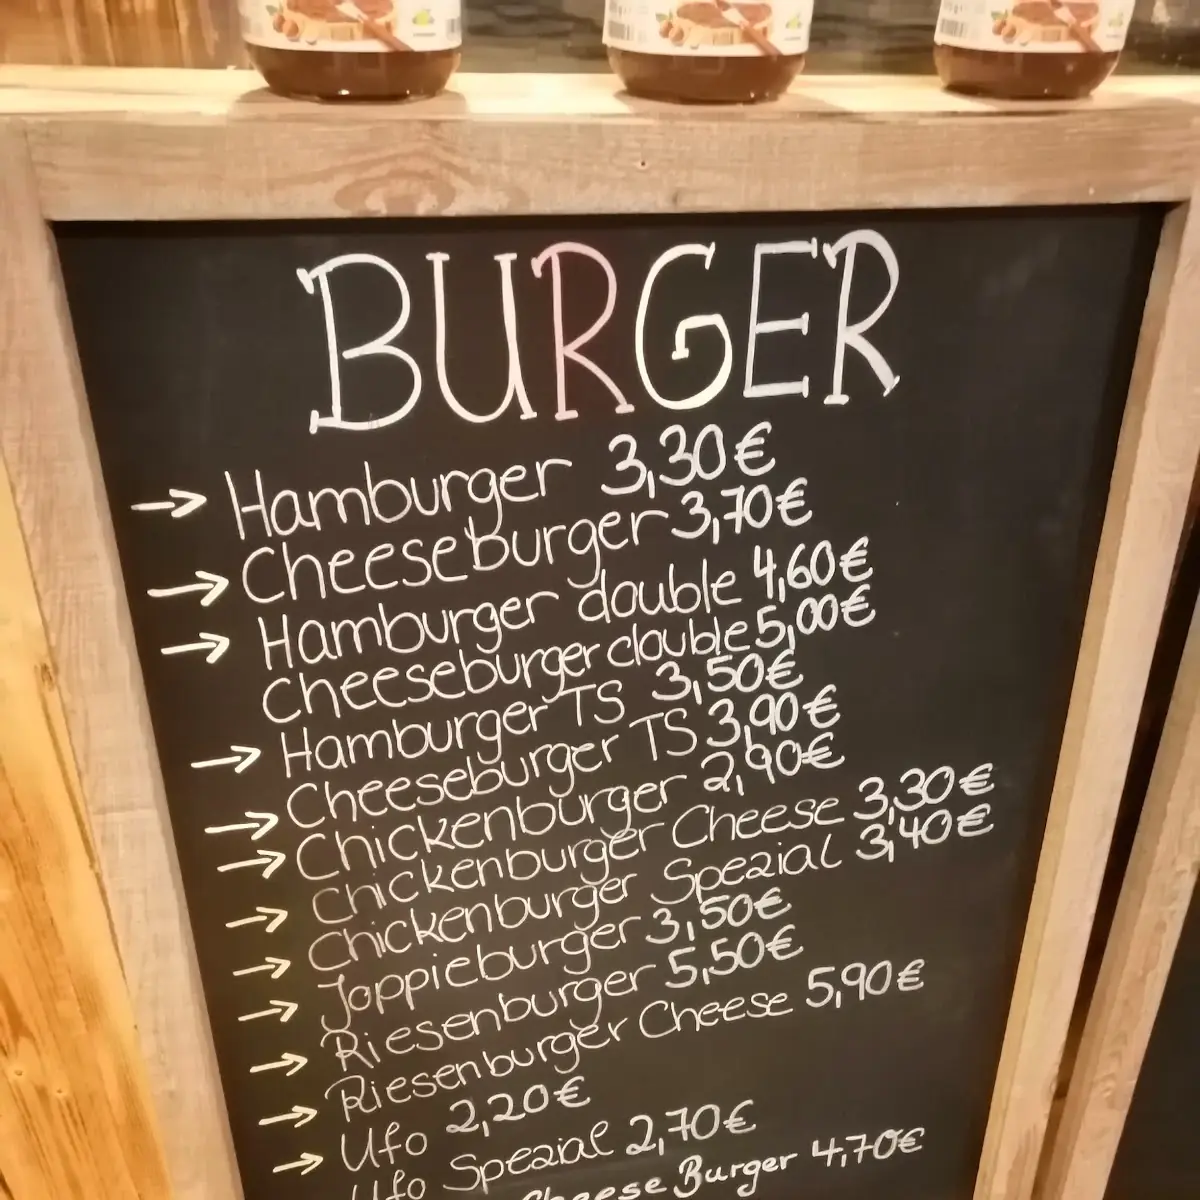 BURGER
→ Hamburger 3,30€
→ Cheeseburger 3,70€
→ Hamburger double 4,60€
Cheeseburger double 5,00€
→ Hamburger TS 3,50€
→ Cheeseburger TS 3,90€
→ Chickenburger 2,90€
→ Chickenburger Cheese 3,30€
→ Chickenburger Spezial 3,40€
→ Joppieburger 3,50€
→ Riesenburger 5,50€
→ Riesenburger Cheese 5,90€
→ Ufo 2,20€
Ufo Spezial 2,70€
Cheese Burger 4,70€